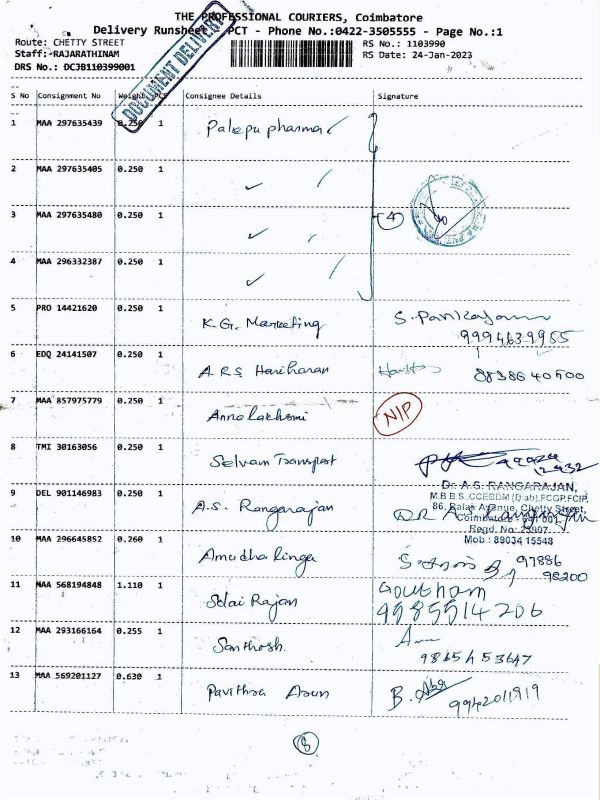 THE PROFESSIONAL COURIERS, Coimbatore
Delivery Runsheet PCT - Phone No.:0422-3505555 - Page No.:1
Route: CHETTY STREET
RS No.: 1103990
Staff: RAJARATHINAM
RS Date: 24-Jan-2023
DRS No.: DCJB110399001
DOCUMENT DELIVERY
S No Consignment No Weight PCS Consignee Details Signature
1 MAA 297635439 0.250 1 Palepu pharma
2 MAA 297635405 0.250 1
3 MAA 297635480 0.250 1
4
4 MAA 296332387 0.250 1
5 PRO 14421620 0.250 1 K.G. Marketing
9994639955
6 EDQ 24141507 0.250 1 A.R.S Hariharan 8838640500
7 MAA 857975779 0.250 1 Annalakshmi N/P
8 TMI 30163056 0.250 1 Selvam Transport
Dr. A.S. RANGARAJAN,
M.B.B.S.,CCEBDM (Diab),FCGP,FCIP,
9 DEL 901146983 0.250 1 A.S. Rangarajan
86, Balaji Avenue, Chetty Street,
Coimbatore - 641 001.
Regd. No: 25907
Mob : 89034 15548
10 MAA 296645852 0.260 1 Amudhalinga
97886
98200
11 MAA 568194848 1.110 1 Solai Rajan Goutham
9585514206
12 MAA 293166164 0.255 1 Santhosh
98654 53647
13 MAA 569201127 0.630 1 Pavithra Arun B.
9942011919
8